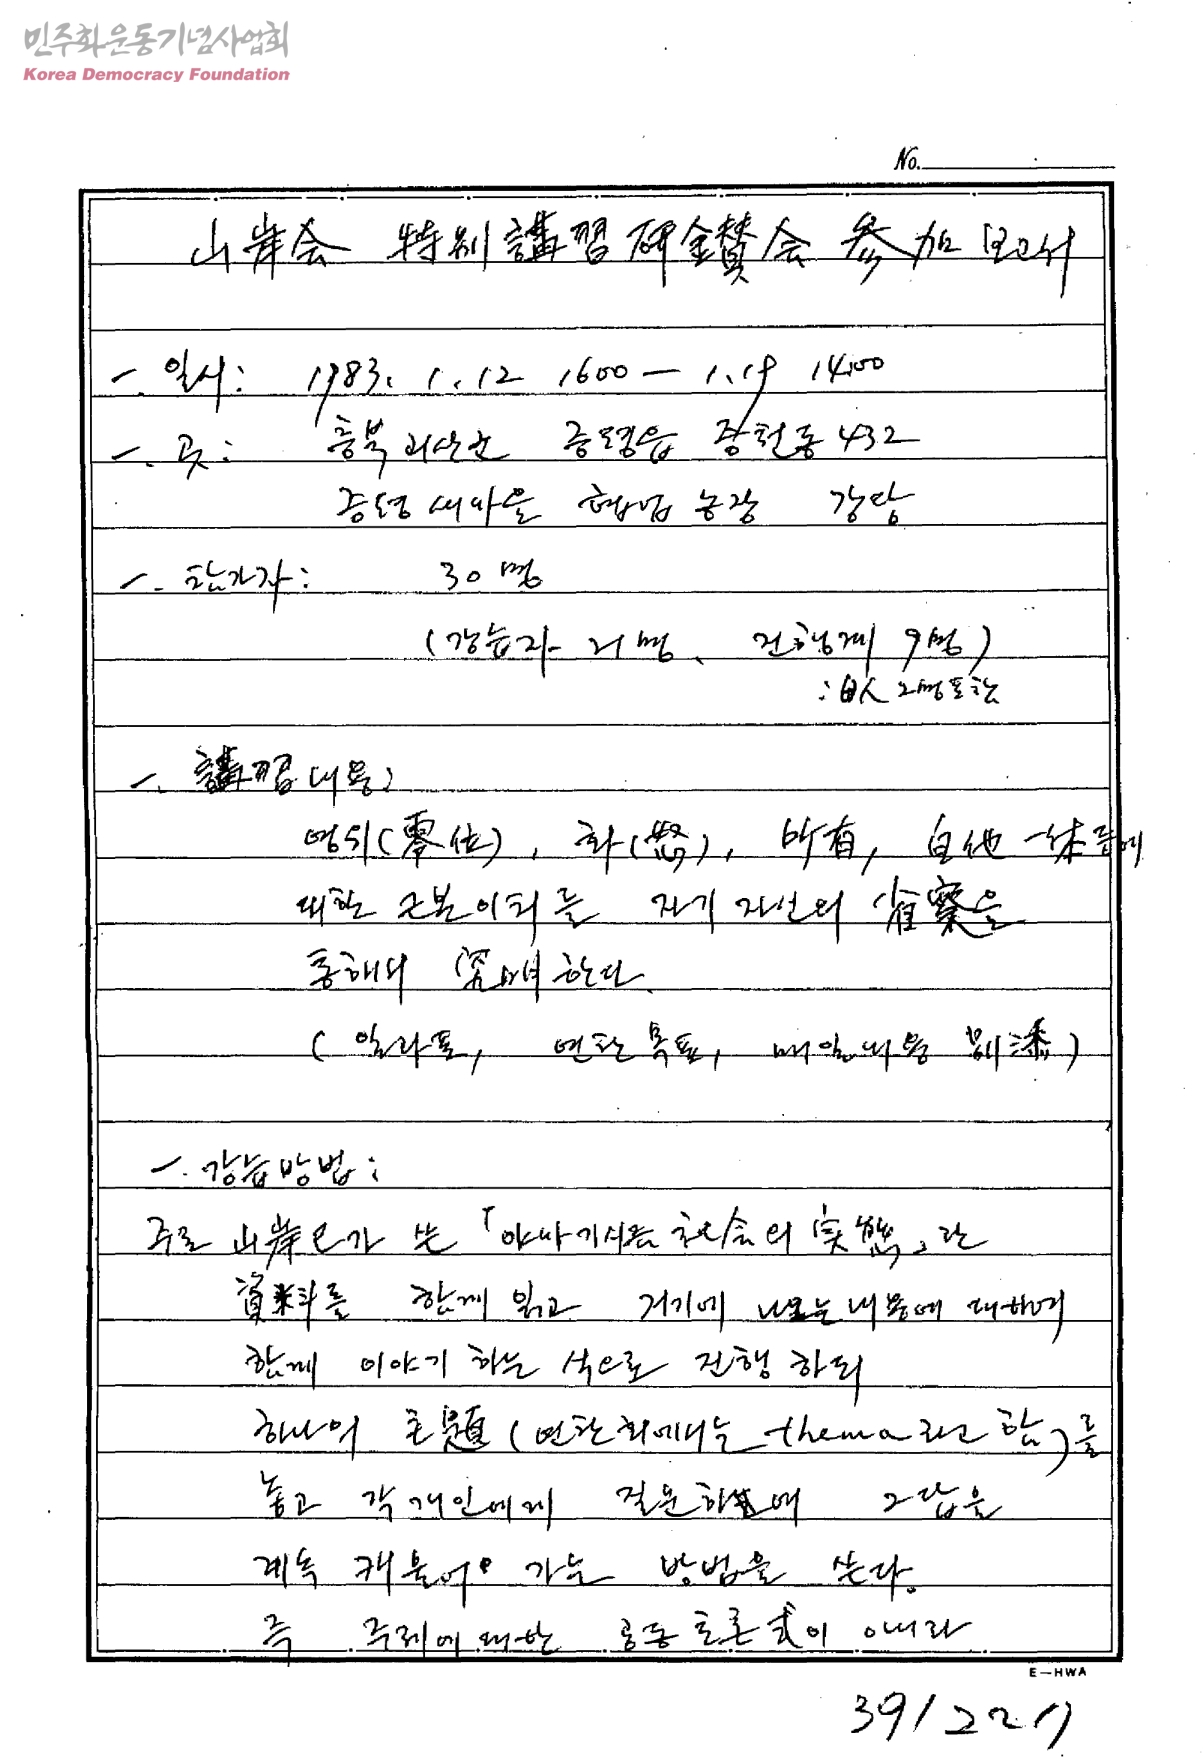 민주화운동기념사업회
Korea Democracy Foundation
No.
山岸会 特別講習研鑽会 参加 보고서
一. 일시: 1983. 1. 12 1600 — 1. 19 14:00
一. 곳: 충북 괴산군 증평읍 장천동 432
증평 새마을 협업 농장 강당
一. 참가자: 30명
(강습자 21명, 진행계 9명)
: 日人 2명 포함
一. 講習 내용:
영위(零位), 화(怒), 所有, 自他 一体 등에
대한 근본이치를 자기 자신의 省察을
통해서 한다.
(일과표, 연찬목표, 매일내용 別添)
一. 강습방법:
주로 山岸 氏가 쓴 「야마기시즘 社会의 実態」란
資料를 함께 읽고 거기에 나오는 내용에 대하여
함께 이야기 하는 식으로 진행 하되
하나의 主題(연찬회에서는 thema 라고 함)를
놓고 각 개인에게 질문하며 그 답을
계속 캐물어 가는 방법을 쓴다.
즉 주제에 대한 공동토론式이 아니라
E-HWA
39/227